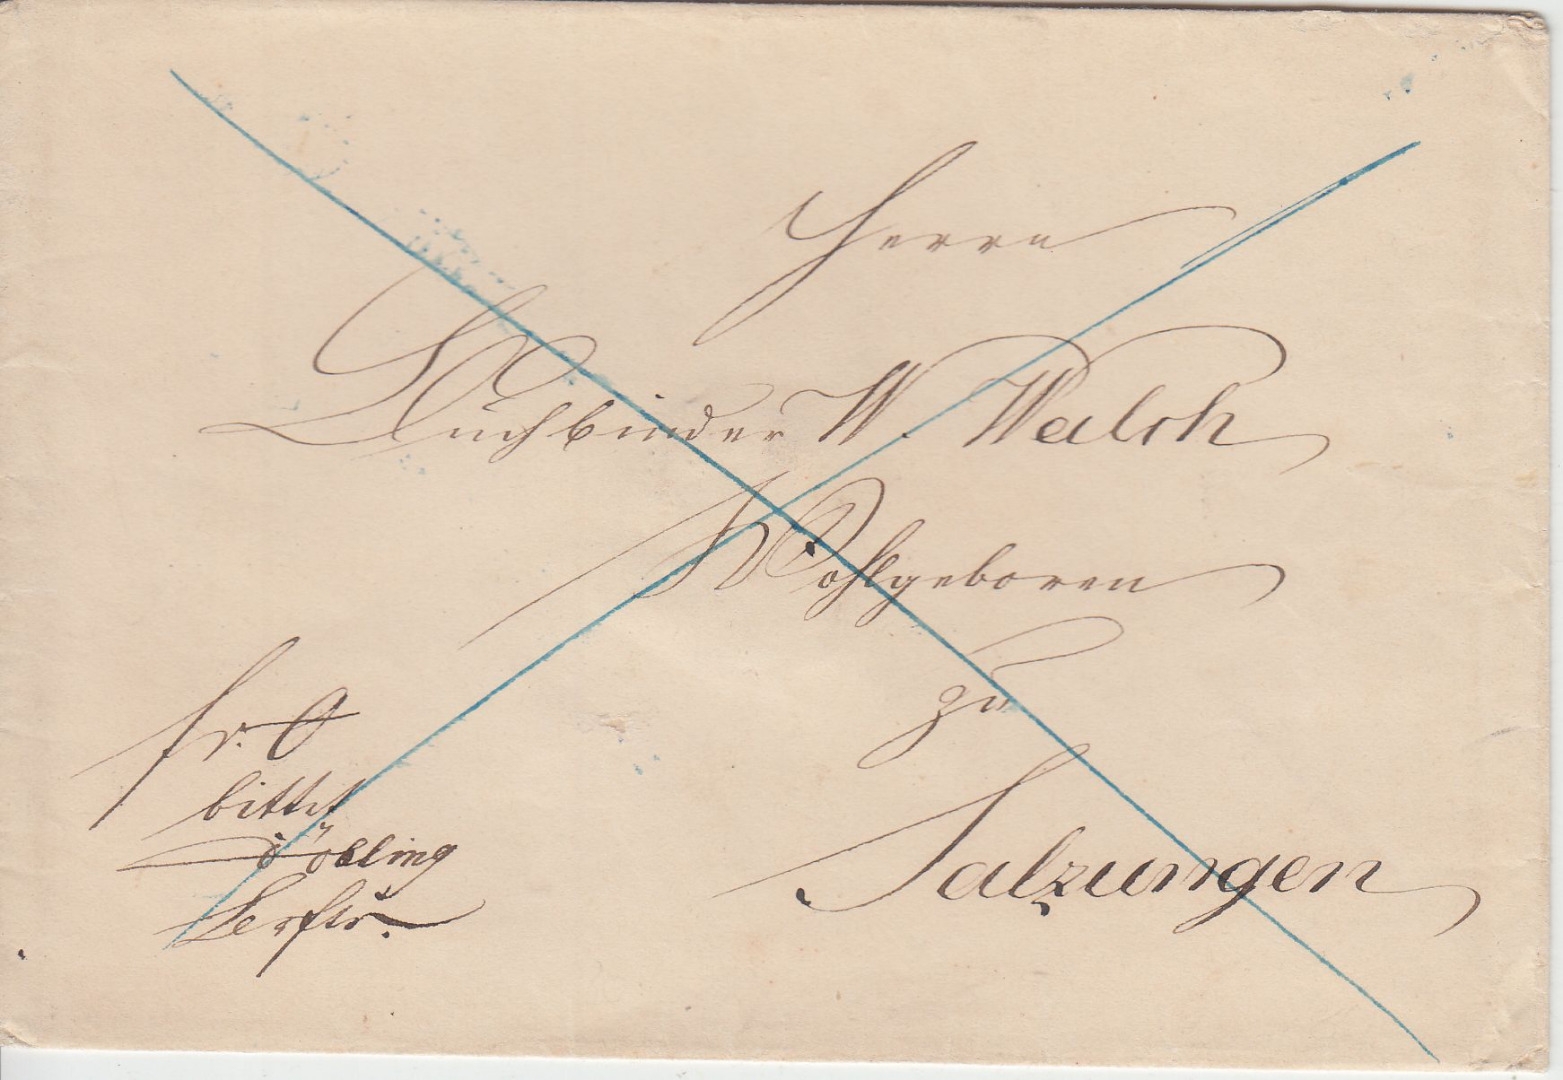 Herrn
Buchbinder W. Walch
Wohlgeboren
zu
Salzungen
fr.
bittet
Döbling